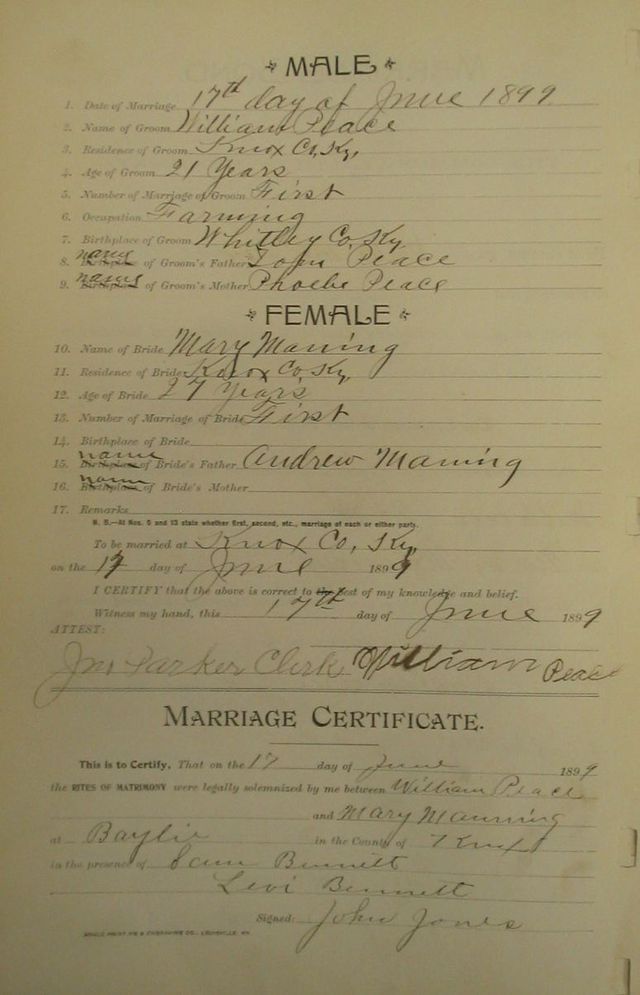 MALE
1. Date of Marriage 17th day of June 1899
2. Name of Groom William Peace
3. Residence of Groom Knox Co, Ky,
4. Age of Groom 21 Years
5. Number of Marriage of Groom First
6. Occupation Farming
7. Birthplace of Groom Whitley Co, Ky
8. name Birthplace of Groom's Father Tom Peace
9. name Birthplace of Groom's Mother Phoebe Peace
FEMALE
10. Name of Bride Mary Maning
11. Residence of Bride Knox Co, Ky,
12. Age of Bride 27 Years
13. Number of Marriage of Bride First
14. Birthplace of Bride
15. name Birthplace of Bride's Father Andrew Maning
16. name Birthplace of Bride's Mother
17. Remarks
N. B.—At Nos. 5 and 13 state whether first, second, etc., marriage of each or either party.
To be married at Knox Co, Ky,
on the 17 day of June 1899
I CERTIFY that the above is correct to the best of my knowledge and belief.
Witness my hand, this 17th day of June 1899
ATTEST:
Jno Parker Clerk William Peace
MARRIAGE CERTIFICATE.
This is to Certify, That on the 17 day of June 1899
the RITES OF MATRIMONY were legally solemnized by me between William Peace
and Mary Manning
at Baylie in the County of Knox
in the presence of Sam Bennett
Levi Bennett
Signed: John Jones